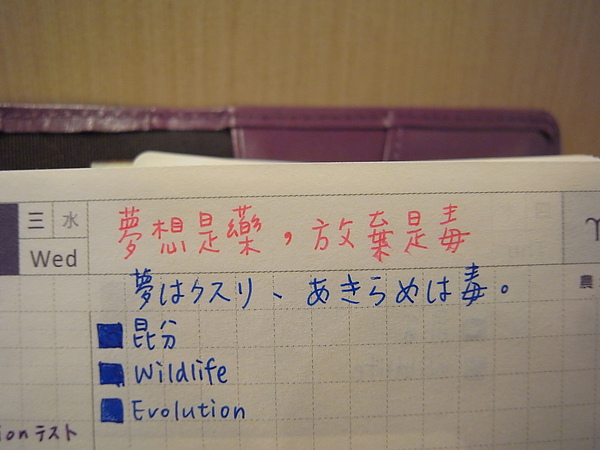 三 水 夢想是藥，放棄是毒
Wed
夢はクスリ、あきらめは毒。
農
昆分
Wildlife
Evolution
ion テスト